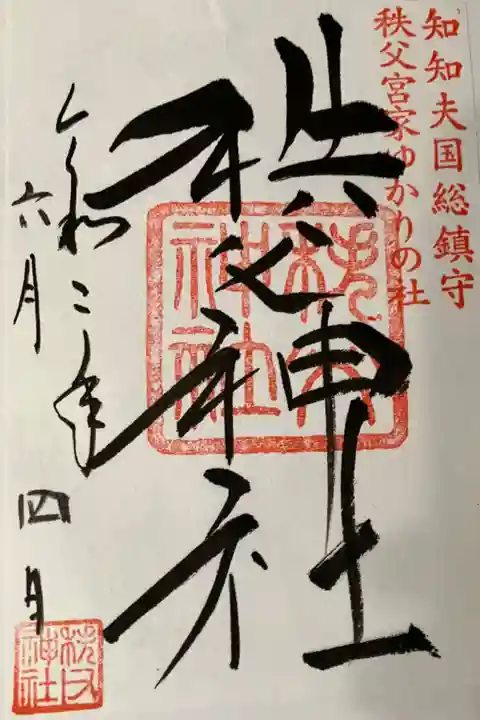 知知夫国総鎮守
秩父宮家ゆかりの社
秩父神社
秩父
神社
令和二年
六月
四日
秩父
神社